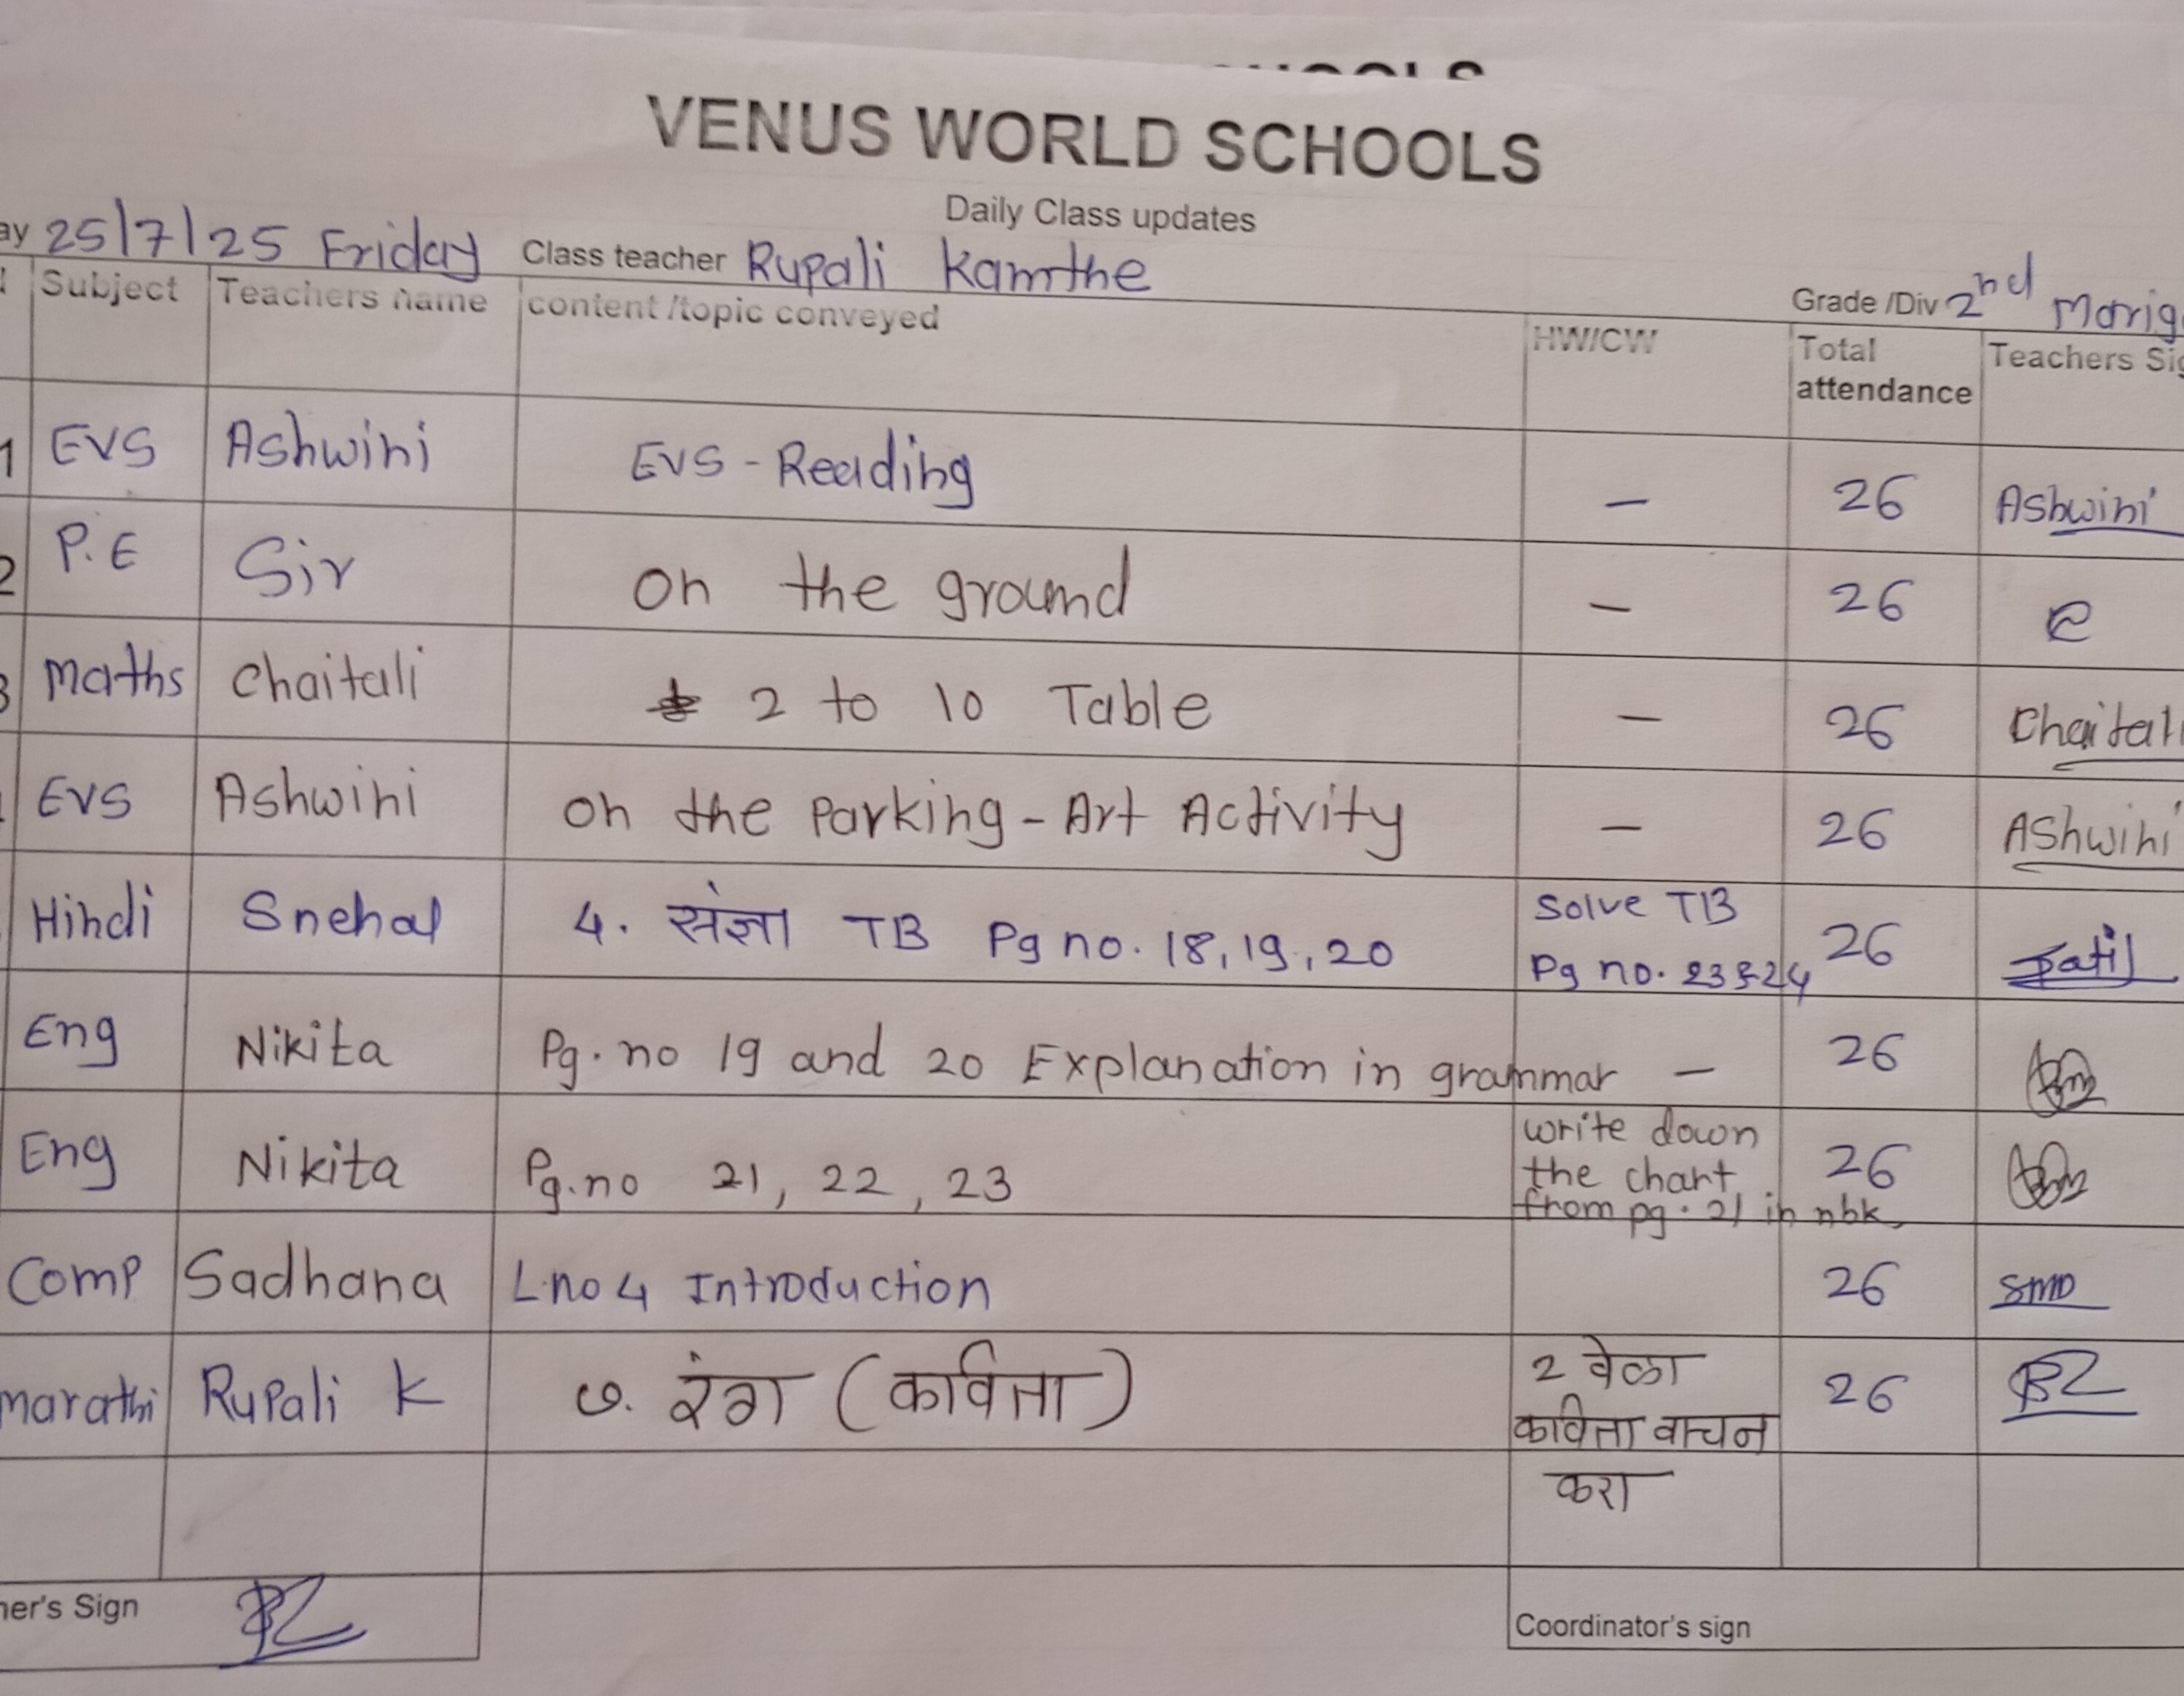 VENUS WORLD SCHOOLS
Daily Class updates
25/7/25 Friday Class teacher Rupali Kamthe Grade /Div 2nd
Subject Teachers name content /topic conveyed HW/CW Total attendance Teachers
1 EVS Ashwini EVS - Reading – 26 Ashwini
2 P.E Sir on the ground – 26
3 Maths Chaitali 2 to 10 Table – 26 Chaitali
EVS Ashwini on the Parking - Art Activity – 26 Ashwini
Hindi Snehal 4. संज्ञा TB Pg no. 18,19,20 Solve TB Pg no. 23 & 24 26 Patil
Eng Nikita Pg. no 19 and 20 Explanation in grammar – 26
Eng Nikita Pg.no 21, 22, 23 write down the chart from pg. 21 in nbk. 26
Comp Sadhana L.no 4 Introduction 26 SMD
marathi Rupali K ७. रंग (कविता) 2 वेळा कविता वाचन करा 26
Sign Coordinator's sign